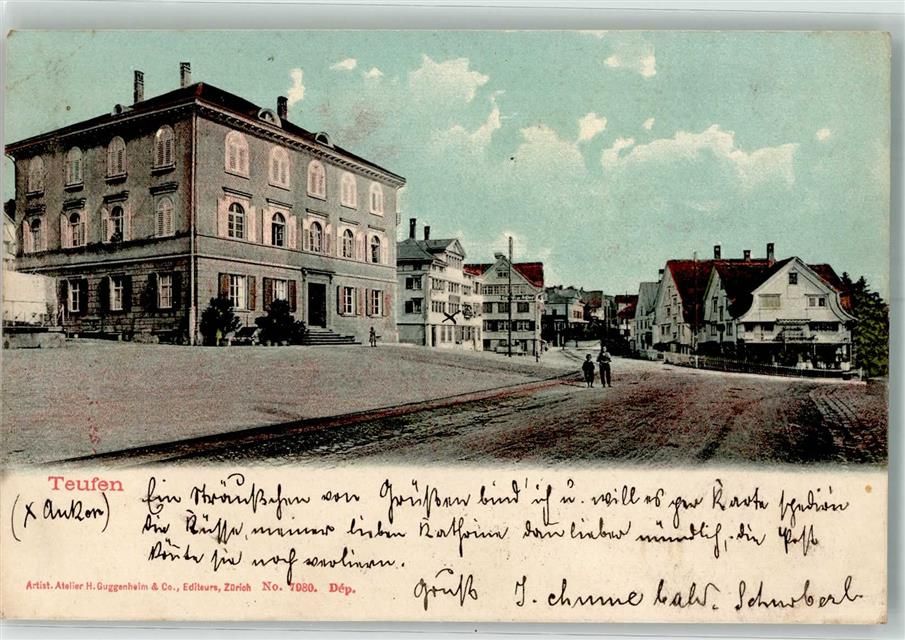 Teufen
(x Anker)
Ein Sträußchen von Grüßen bind' ich u. will es per Karte spediern
die Küsse, meiner lieben Kathrine dan lieber mündlich, die Post
könnte sie noch verliern.
Gruß I. chume bald.
Artist. Atelier H. Guggenheim & Co., Editeurs, Zürich No. 7080. Dép.